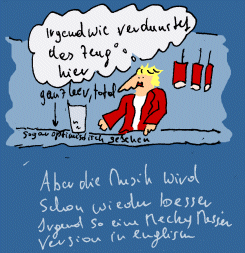 Irgendwie verdunstet
das Zeug
hier
ganz leer, total
sogar optimistisch gesehen
Aber die Musik wird
schon wieder besser
Irgend so eine Mecky Messer
Version in englisch